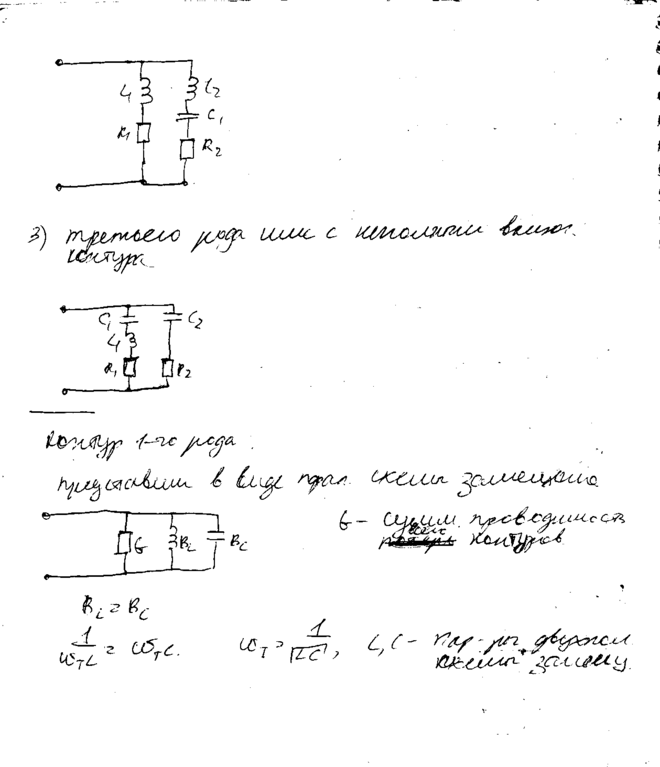 L₁ L₂
C₁
R₁ R₂
3) третьего рода или с неполным включ.
контура
C₁ C₂
L₁
R₁ R₂
Контур 1-го рода.
представим в виде парал. схемы замещения
G B_L B_C
G – сумм. проводимость
контуров
B_L = B_C
1/(ω_T L) = ω_T C. ω_T = 1/√(LC), L, C – пар-ры
схемы замещ.